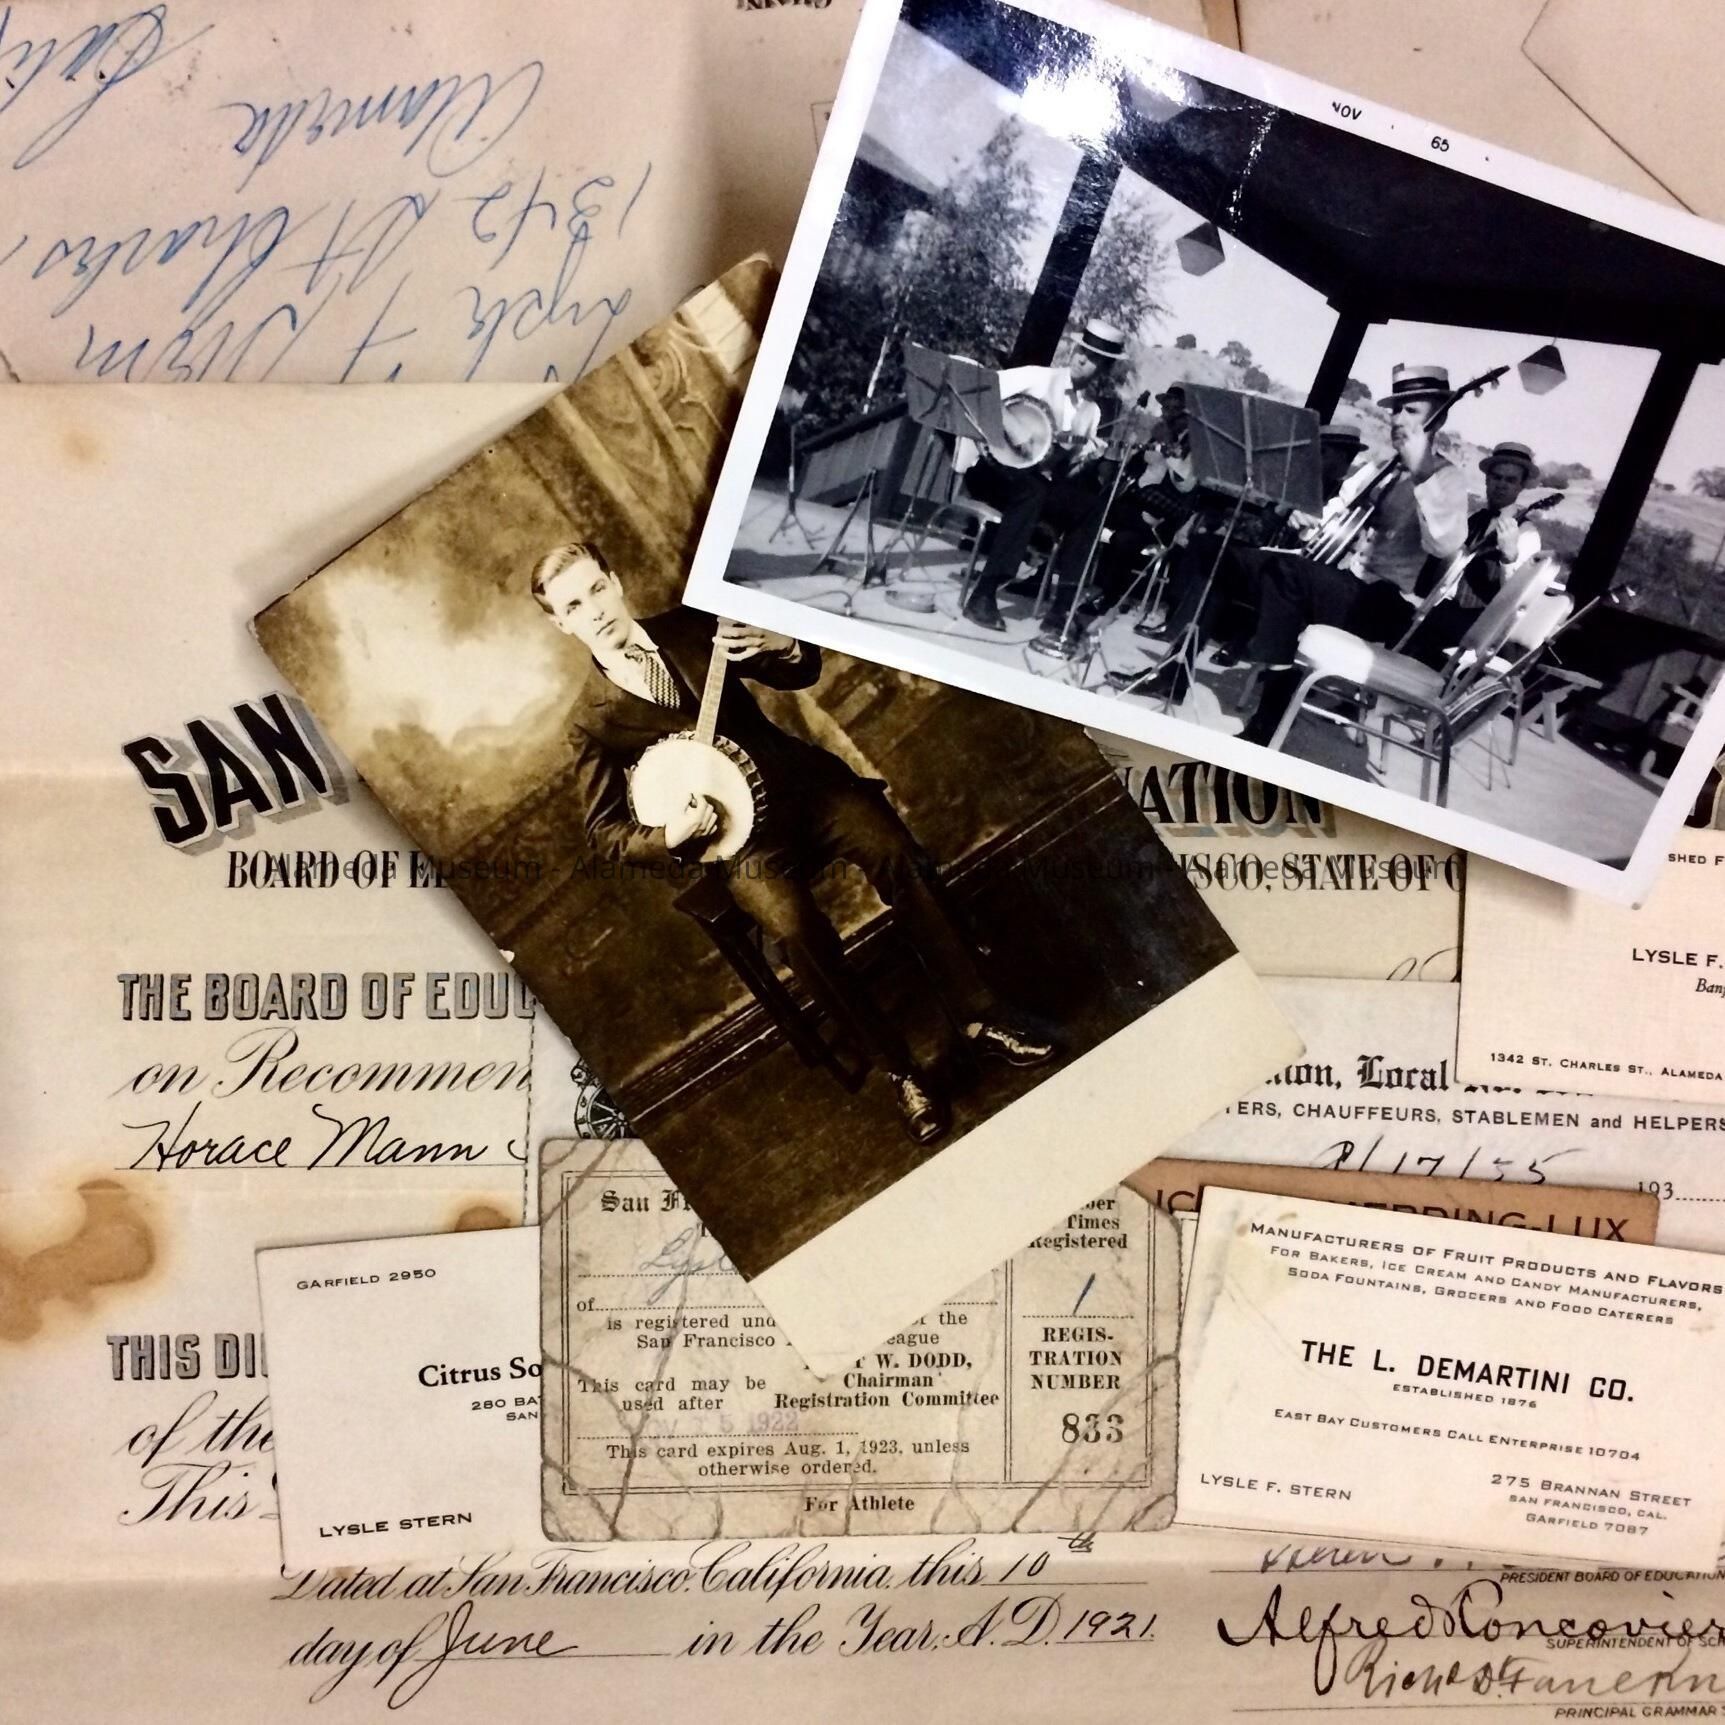 Calif
Alameda
1342 St Charles
Lysle F Stern
NOV · 65
SAN
NATION
BOARD OF E
ISCO, STATE OF C
Alameda Museum - Alameda Museum - Alameda Museum - Alameda Museum
THE BOARD OF EDUC
on Recommen
Horace Mann
SHED F
LYSLE F.
Banj
1342 ST. CHARLES ST., ALAMEDA
Local
ERS, CHAUFFEURS, STABLEMEN and HELPERS
193
THIS DI
of the
This
GARFIELD 2950
Citrus So
280 BA
SAN
LYSLE STERN
San Fr
Lysl
of
is registered und
of the
San Francisco
eague
W. DODD,
Chairman
This card may be
used after
Registration Committee
NOV 15 1922
This card expires Aug. 1, 1923, unless
otherwise ordered.
For Athlete
ber
Times
Registered
1
REGIS-
TRATION
NUMBER
833
RDING-LUX
MANUFACTURERS OF FRUIT PRODUCTS AND FLAVORS
FOR BAKERS, ICE CREAM AND CANDY MANUFACTURERS,
SODA FOUNTAINS, GROCERS AND FOOD CATERERS
THE L. DEMARTINI CO.
ESTABLISHED 1876
EAST BAY CUSTOMERS CALL ENTERPRISE 10704
LYSLE F. STERN
275 BRANNAN STREET
SAN FRANCISCO, CAL.
GARFIELD 7087
Dated at San Francisco, California, this 10th
day of June in the Year, A.D. 1921.
PRESIDENT BOARD OF EDUCATION
Alfred Roncovieri
SUPERINTENDENT OF SCH
PRINCIPAL GRAMMAR